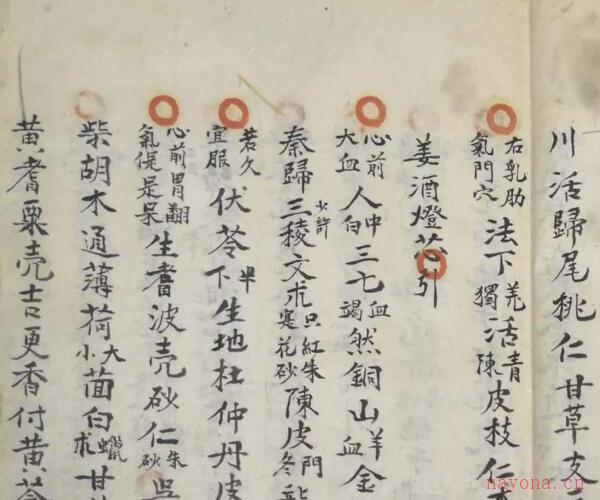 川活歸尾桃仁甘草
右乳肋氣門穴 法下羌獨活青陳皮枝仁
姜酒燈芯引
心前大血 人中白三七血竭然銅山羊血金
秦歸三稜少許文朮只寔紅花朱砂陳皮門冬
若久宜服 伏苓半下生地杜仲丹皮
心前胃翻氣促是呆 生耆波壳砂仁朱砂
柴胡木通薄荷大小茴白蠟朮甘
黃耆粟壳吉更香付黃芩
nayona.cn